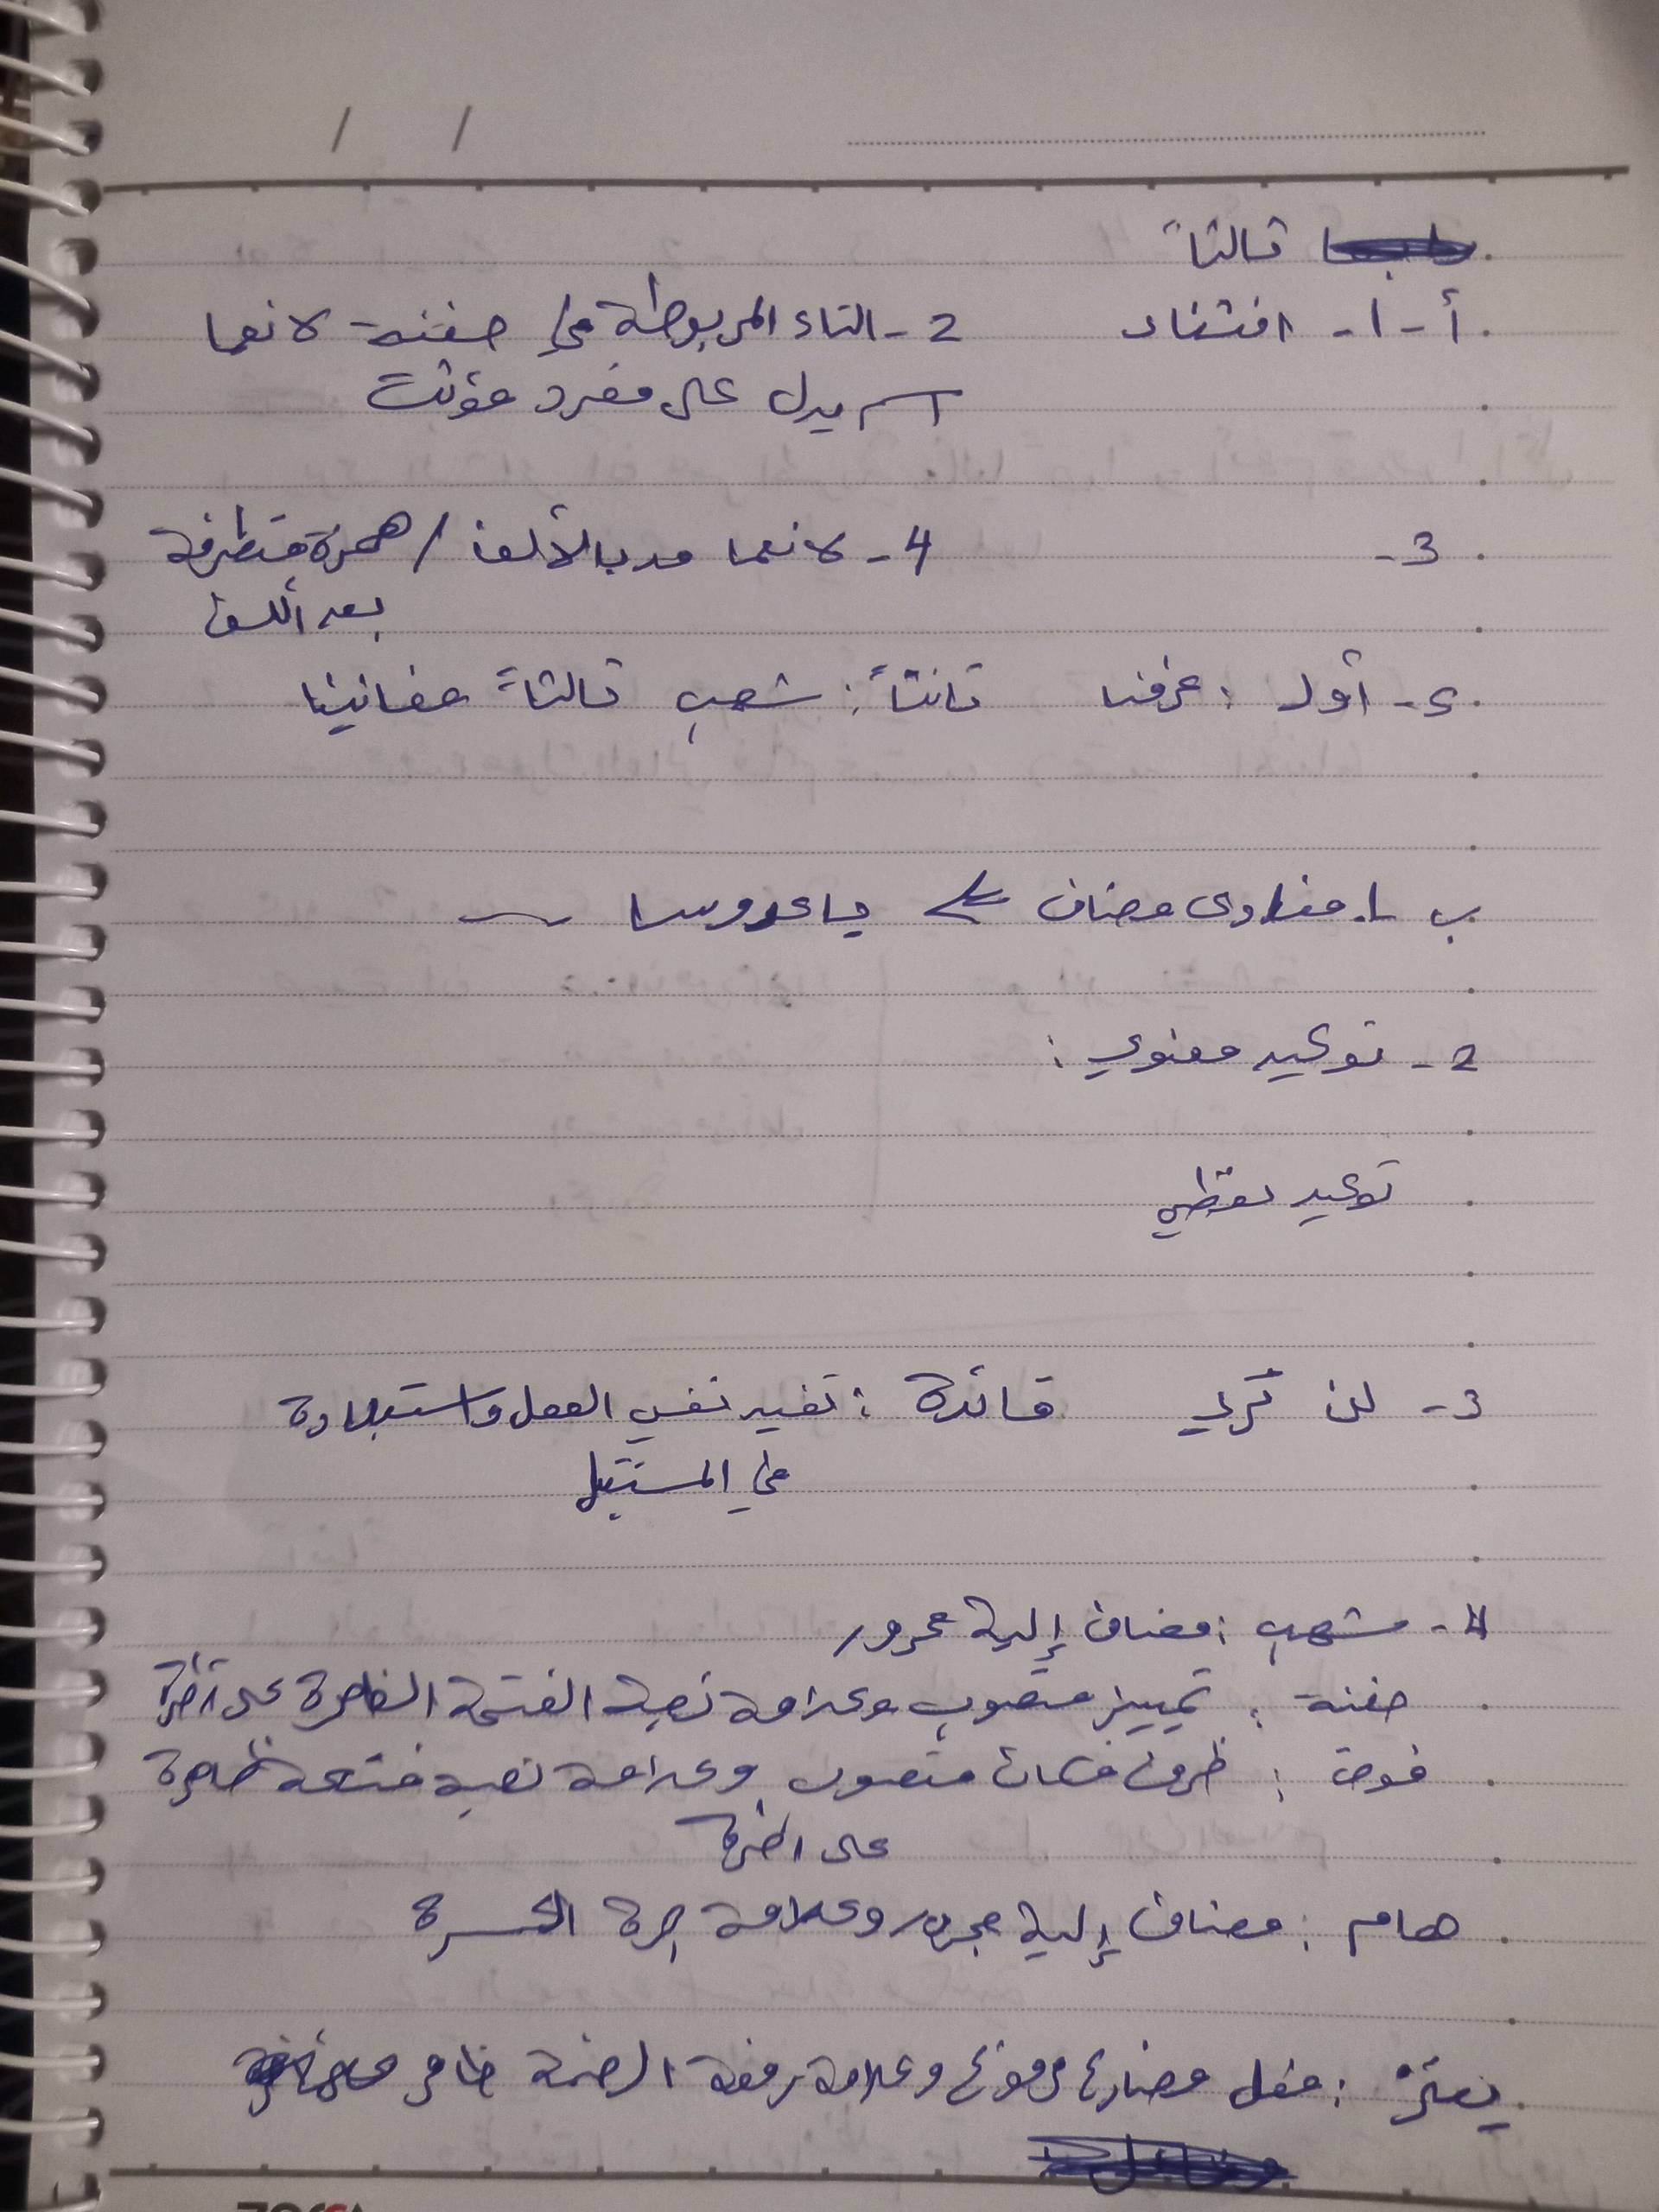 ثالثاً
أ - ١- افتقاد 2- التاء المربوطة في حفنة لانها
اسم يدل على مفرد مؤنث
3- 4- لانها مد بالألف / همزة متطرفة
بعد ألف
5- أولا : عرفنا ثانياً : شهب ثالثاً معانينا
ب 1. منادى مضاف يا عروسا
2- توكيد معنوي :
توكيد لفظي
3- لن تري فائدة : تفيد نفي الفعل واستبعاده
في المستقبل
4- شهب : مضاف إليه مجرور
حفنة : تمييز منصوب وعلامة نصبه الفتحة الظاهرة على آخره
فوق : ظرف مكان منصوب وعلامة نصبه فتحة ظاهرة
على اخره
هام : مضاف إليه مجرور وعلامة جره الكسرة
يعتزّ : فعل مضارع مرفوع وعلامة رفعه الضمة